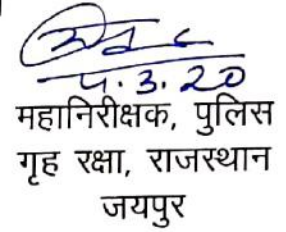 ५.3.20
महानिरीक्षक, पुलिस
गृह रक्षा, राजस्थान
जयपुर